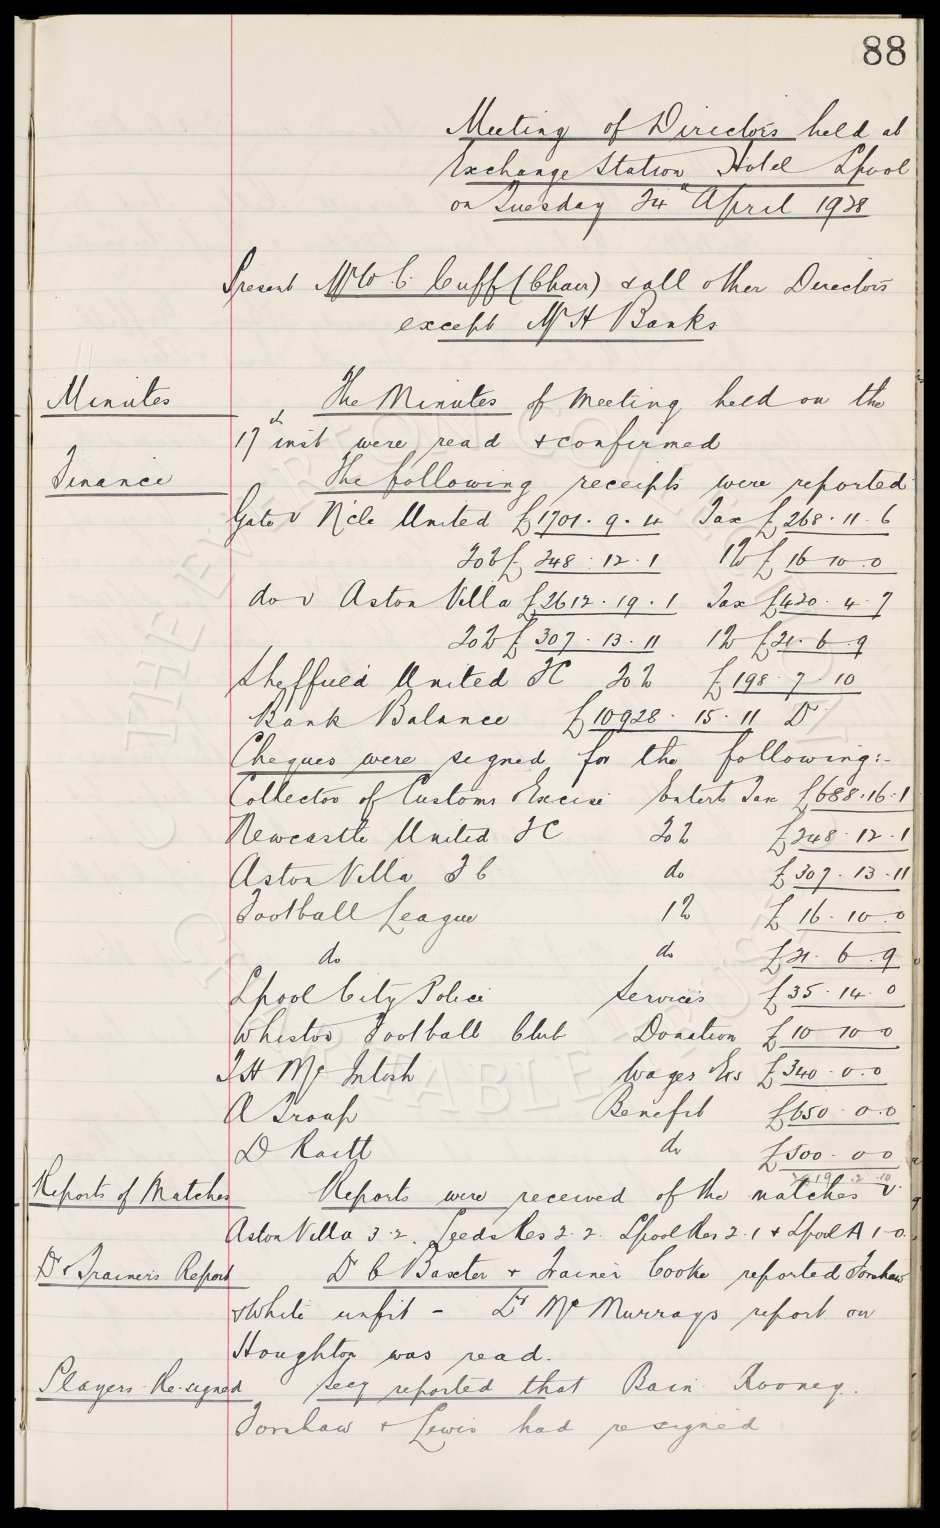 88
Meeting of Directors held at
Exchange Station Hotel Lpool
on Tuesday 24th April 1928
Present Mr W C Cuff (Chair) & all other Directors
except Mr H Banks
Minutes The Minutes of Meeting held on the
17th inst were read & confirmed
Finance The following receipts were reported
Gate v N'cle United £1701. 9. 4 Tax £268. 11. 6
20% £248. 12. 1 1% £16 10. 0
do v Aston Villa £2612. 19. 1 Tax £420. 4. 7
20% £307. 13. 11 1% £21. 6. 9
Sheffield United FC 20% £198. 7 10
Bank Balance £10928. 15. 11 Dr
Cheques were signed for the following:-
Collector of Customs Excise Entert Tax £688.16.1
Newcastle United FC 20% £248. 12. 1
Aston Villa F C do £307. 13. 11
Football League 1% £16. 10. 0
do do £21. 6. 9
Lpool City Police Services £35. 14. 0
Whiston Football Club Donation £10 10 0
T H Mc Intosh Wages Etc £340. 0. 0
A Troup Benefit £650. 0. 0
D Raitt do £500. 0 0
Reports of Matches Reports were received of the matches v.
Aston Villa 3.2. Leeds Res 2.2. Lpool Res 2.1 & Lpool A 1-0.
Dr & Trainers Report Dr C Baxter & Trainer Cooke reported Forshaw
& White unfit - Dr Mc Murrays report on
Houghton was read.
Players Re-signed Secy reported that Bain. Rooney.
Forshaw & Lewis had resigned
THE EVERTON COLLECTION
CHARITABLE TRUST